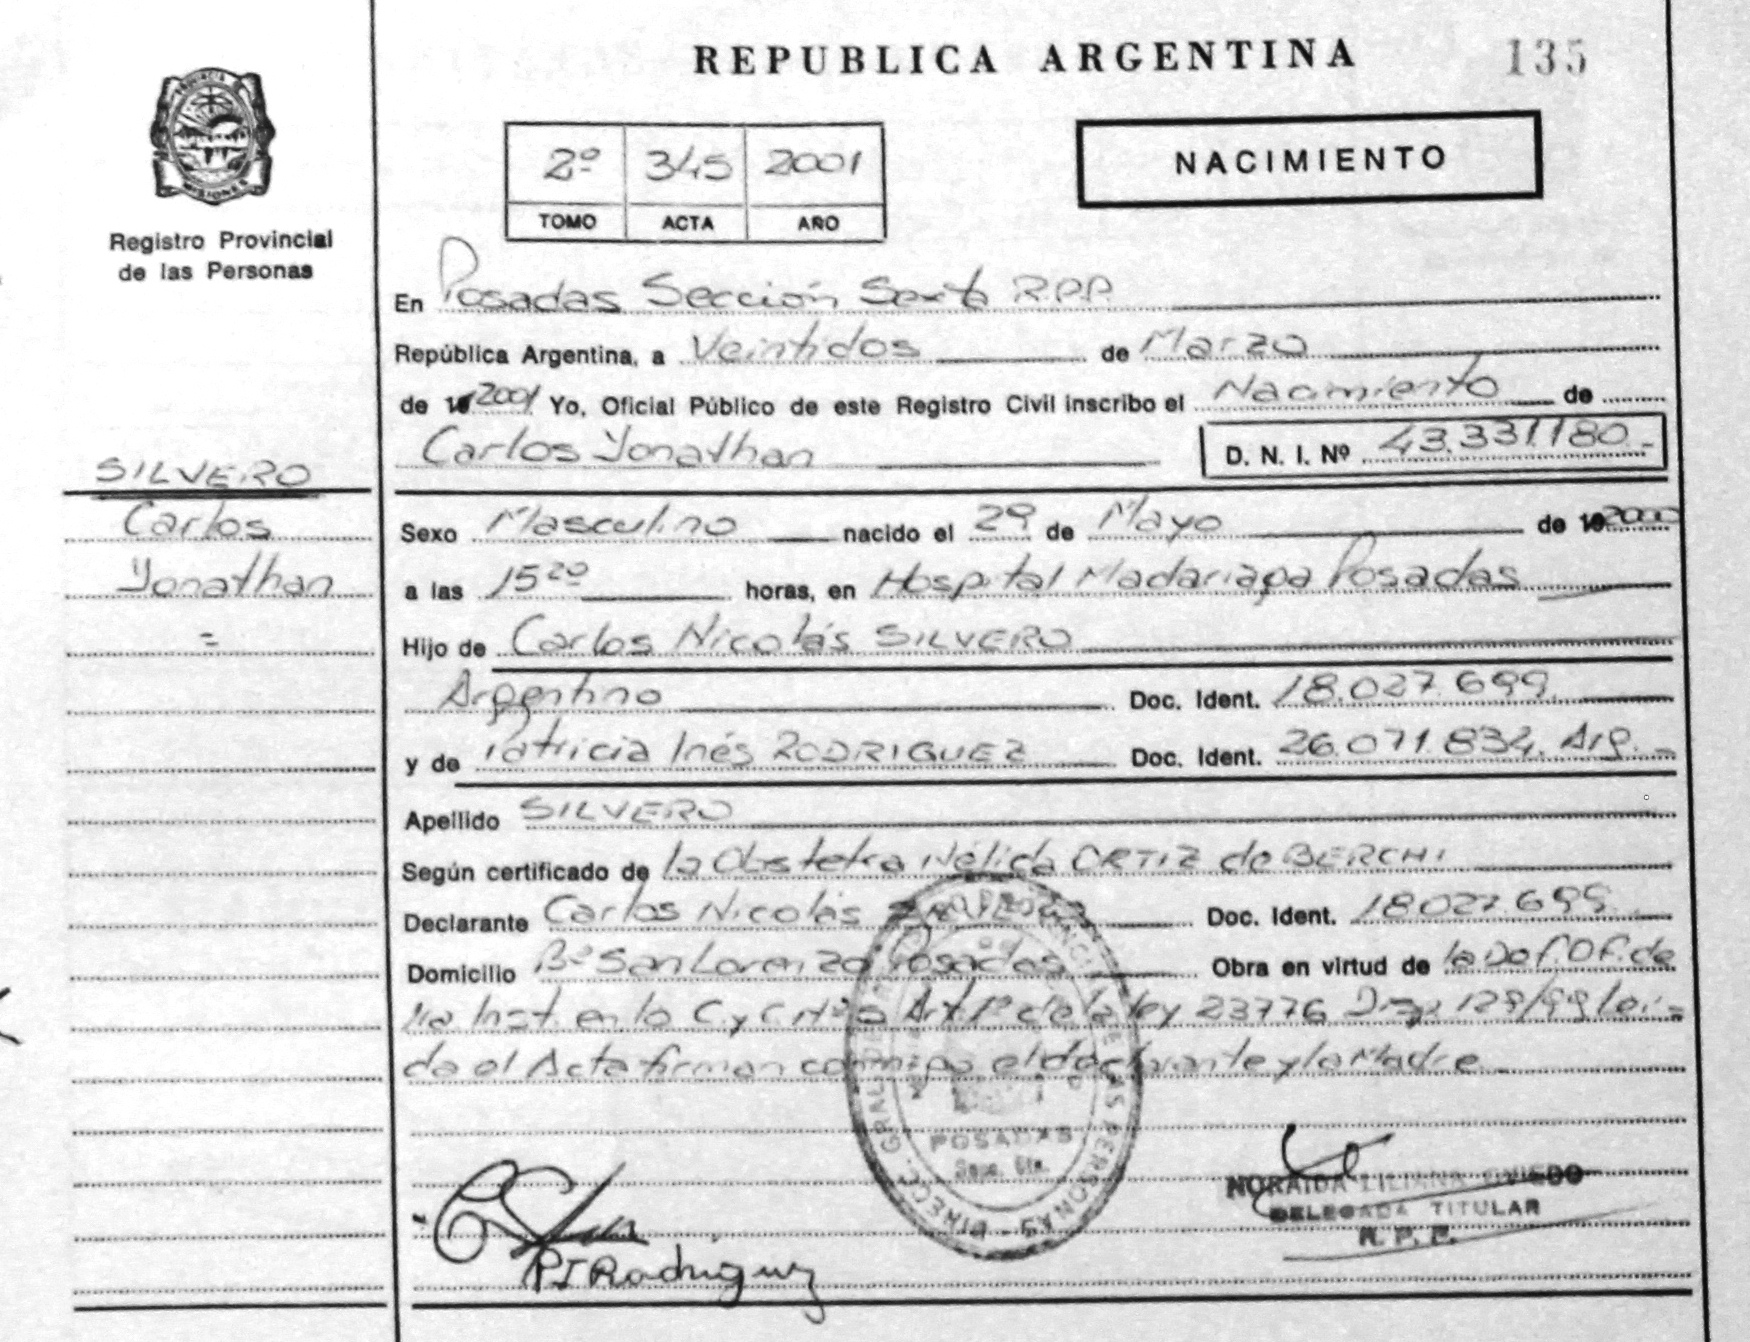 REPUBLICA ARGENTINA
135
PROVINCIA
MISIONES
Registro Provincial
de las Personas
2º 345 2001
TOMO ACTA AÑO
NACIMIENTO
En Posadas Sección Sexta R.P.P.
República Argentina, a Veintidos de Marzo
de 2001 Yo, Oficial Público de este Registro Civil inscribo el Nacimiento de
Carlos Yonathan D. N. I. Nº 43.331.180.-
SILVERO
Carlos
Yonathan
=
Sexo Masculino nacido el 29 de Mayo de 2000
a las 15 20 horas, en Hospital Madariaga Posadas
Hijo de Carlos Nicolás SILVERO
Argentino Doc. Ident. 18.027.699.
y de Patricia Inés RODRIGUEZ Doc. Ident. 26.071.834. Arg. =
Apellido SILVERO
Según certificado de la Obstetra Nélida ORTIZ de BERCHI
Declarante Carlos Nicolás Doc. Ident. 18.027.699.
Domicilio Bº San Lorenzo Posadas Obra en virtud de la Def. Of. de
1ra Inst. en lo C y C Nº Art. 1º de la ley 23776 Disp. 129/99 Leí=
da el Acta firman conmigo el declarante y la Madre
DIRECC. GRAL. DE LAS PERSONAS
POSADAS
Secc. 6ta.
NORAIDA LILIANA OVIEDO
DELEGADA TITULAR
R. P. P.
PI Rodriguez